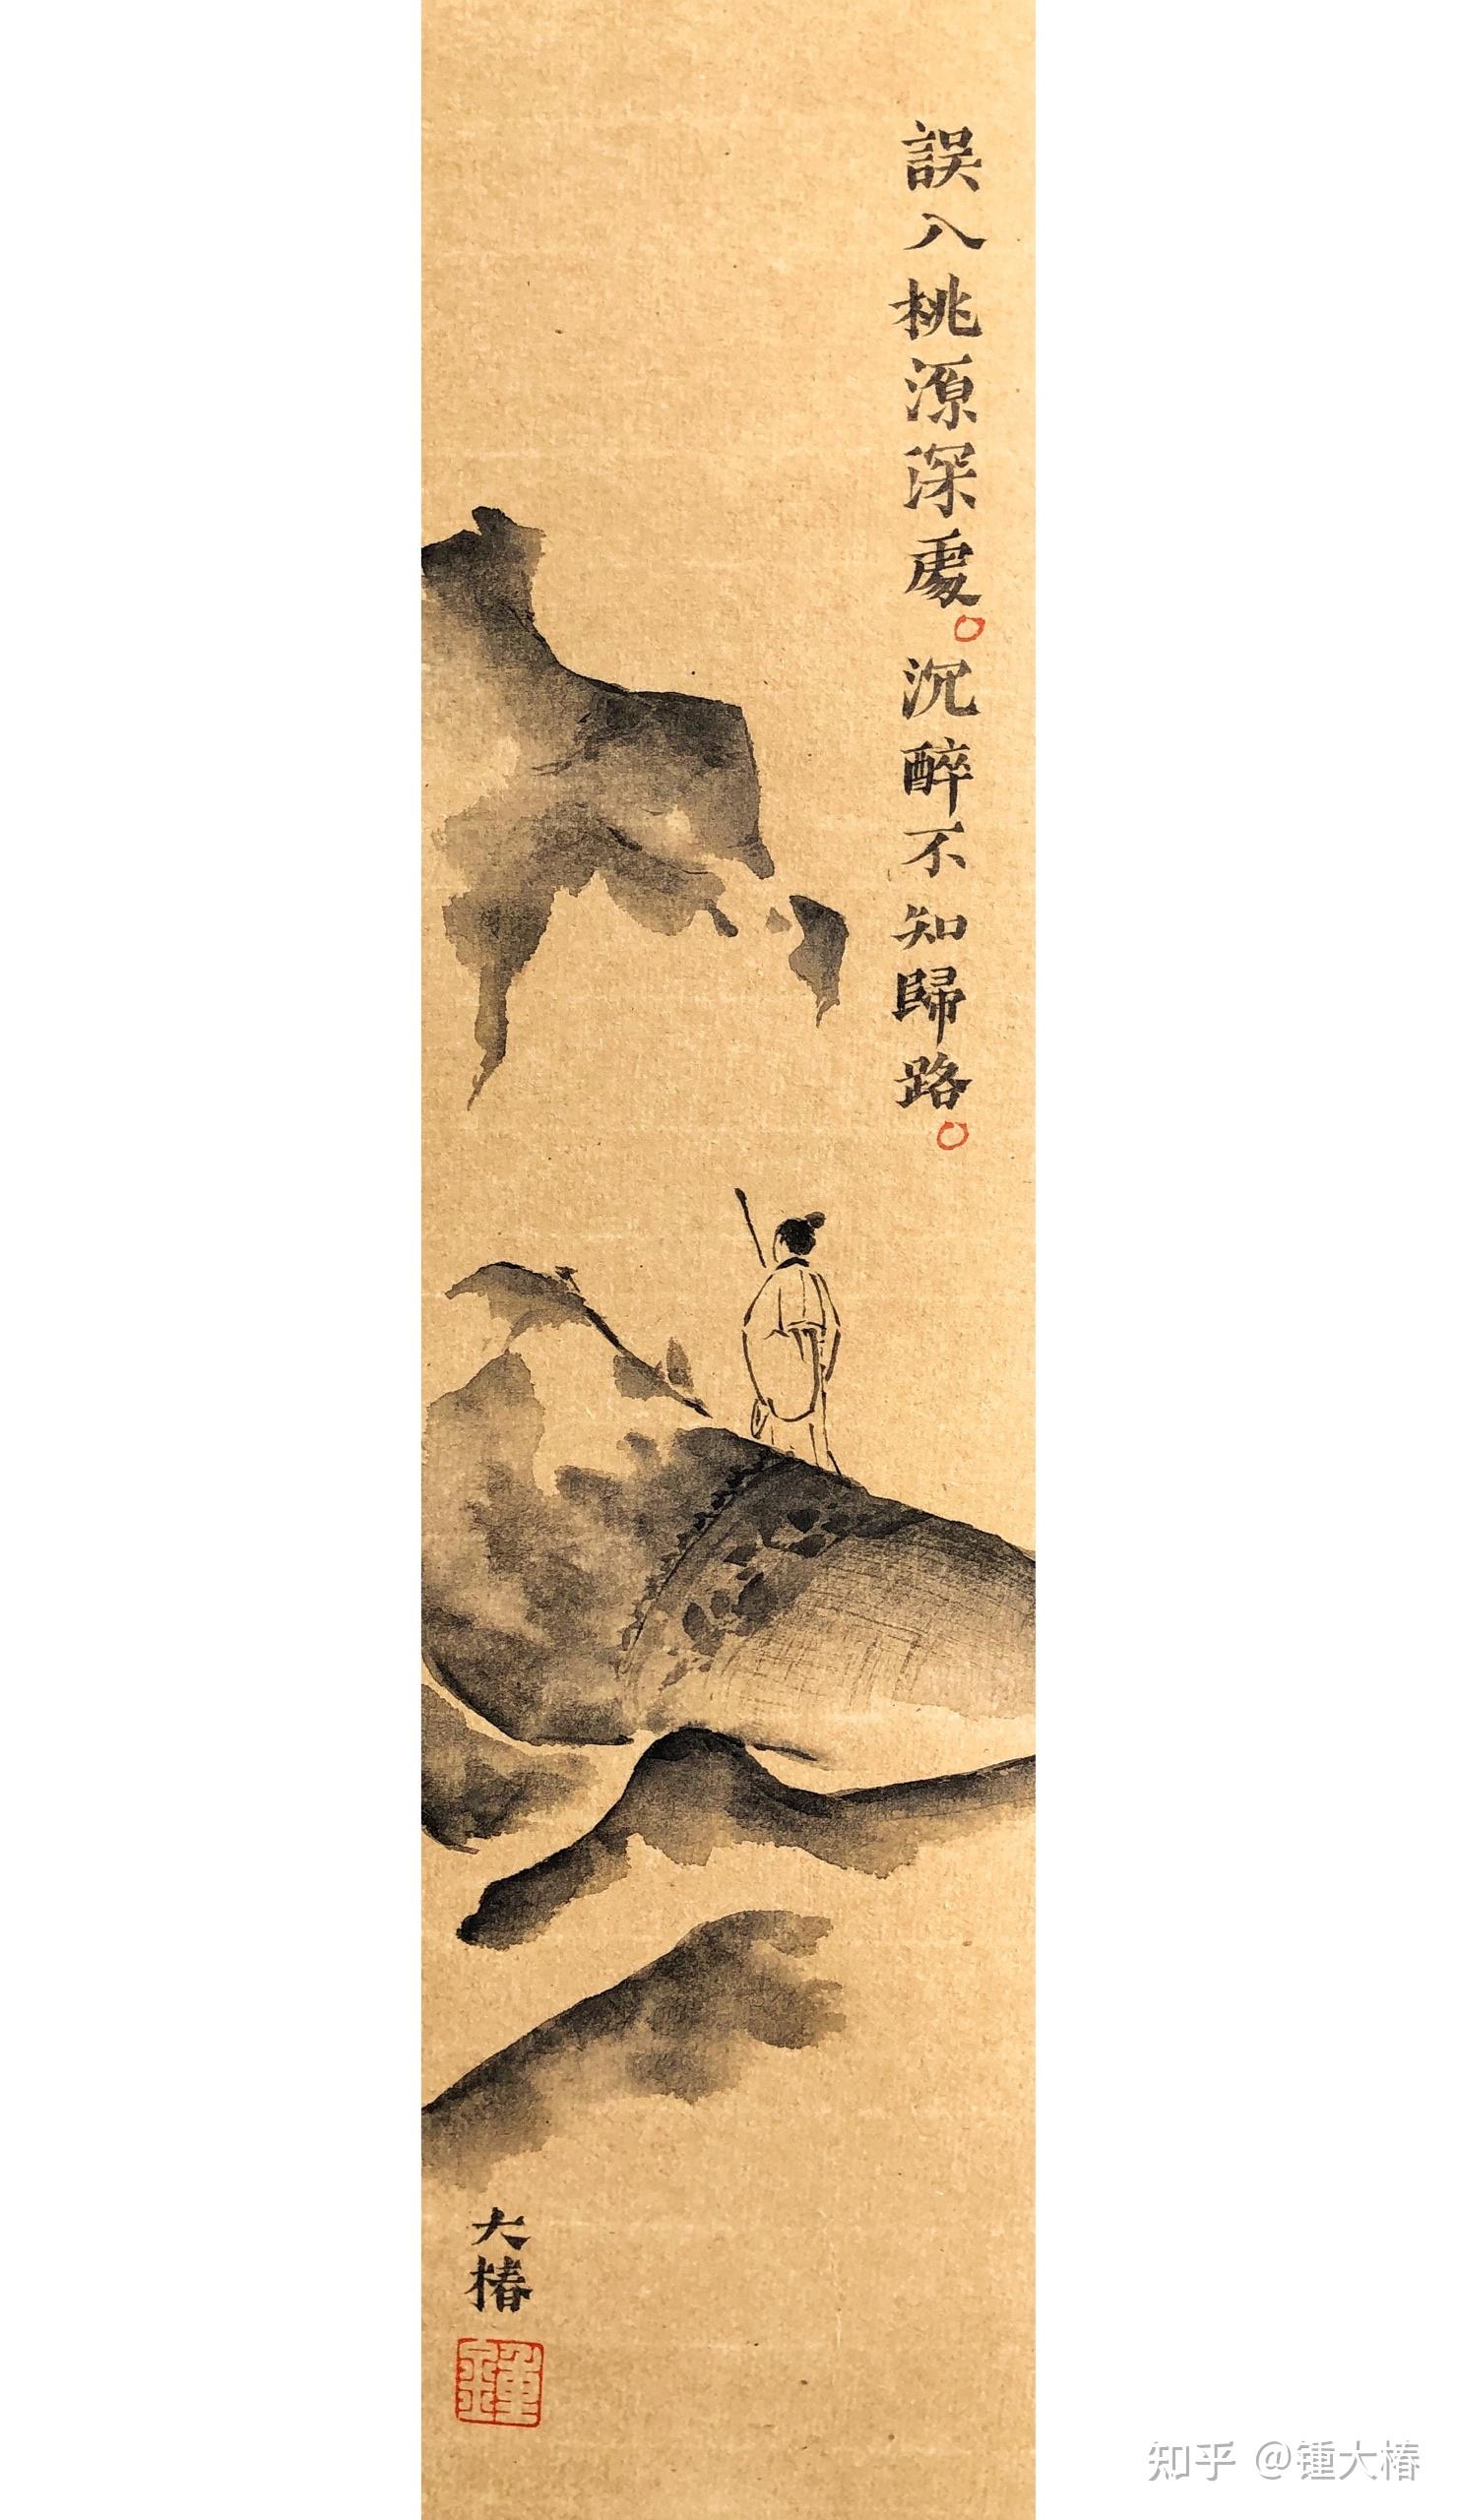 誤入桃源深處。沉醉不知歸路。
大椿
鍾
知乎 @锺大椿